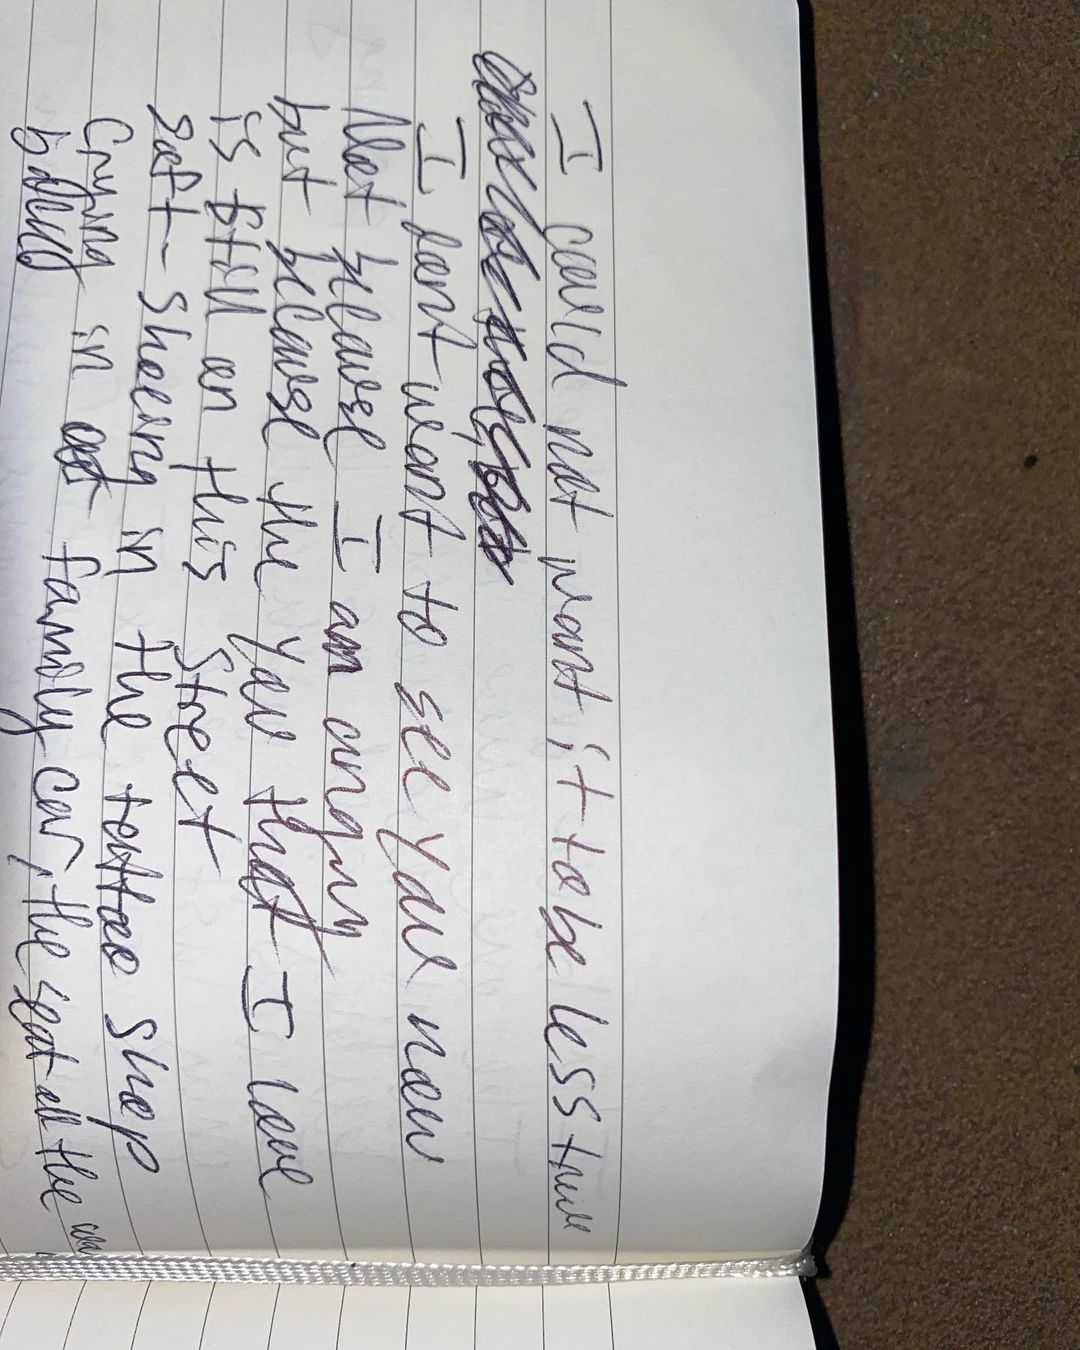 I could not want it to be less true
I dont want to see you now
Not because I am angry
but because the you that I love
is still on this street
soft-shoeing in the tattoo shop
Crying in our family car, the seat all the way
back